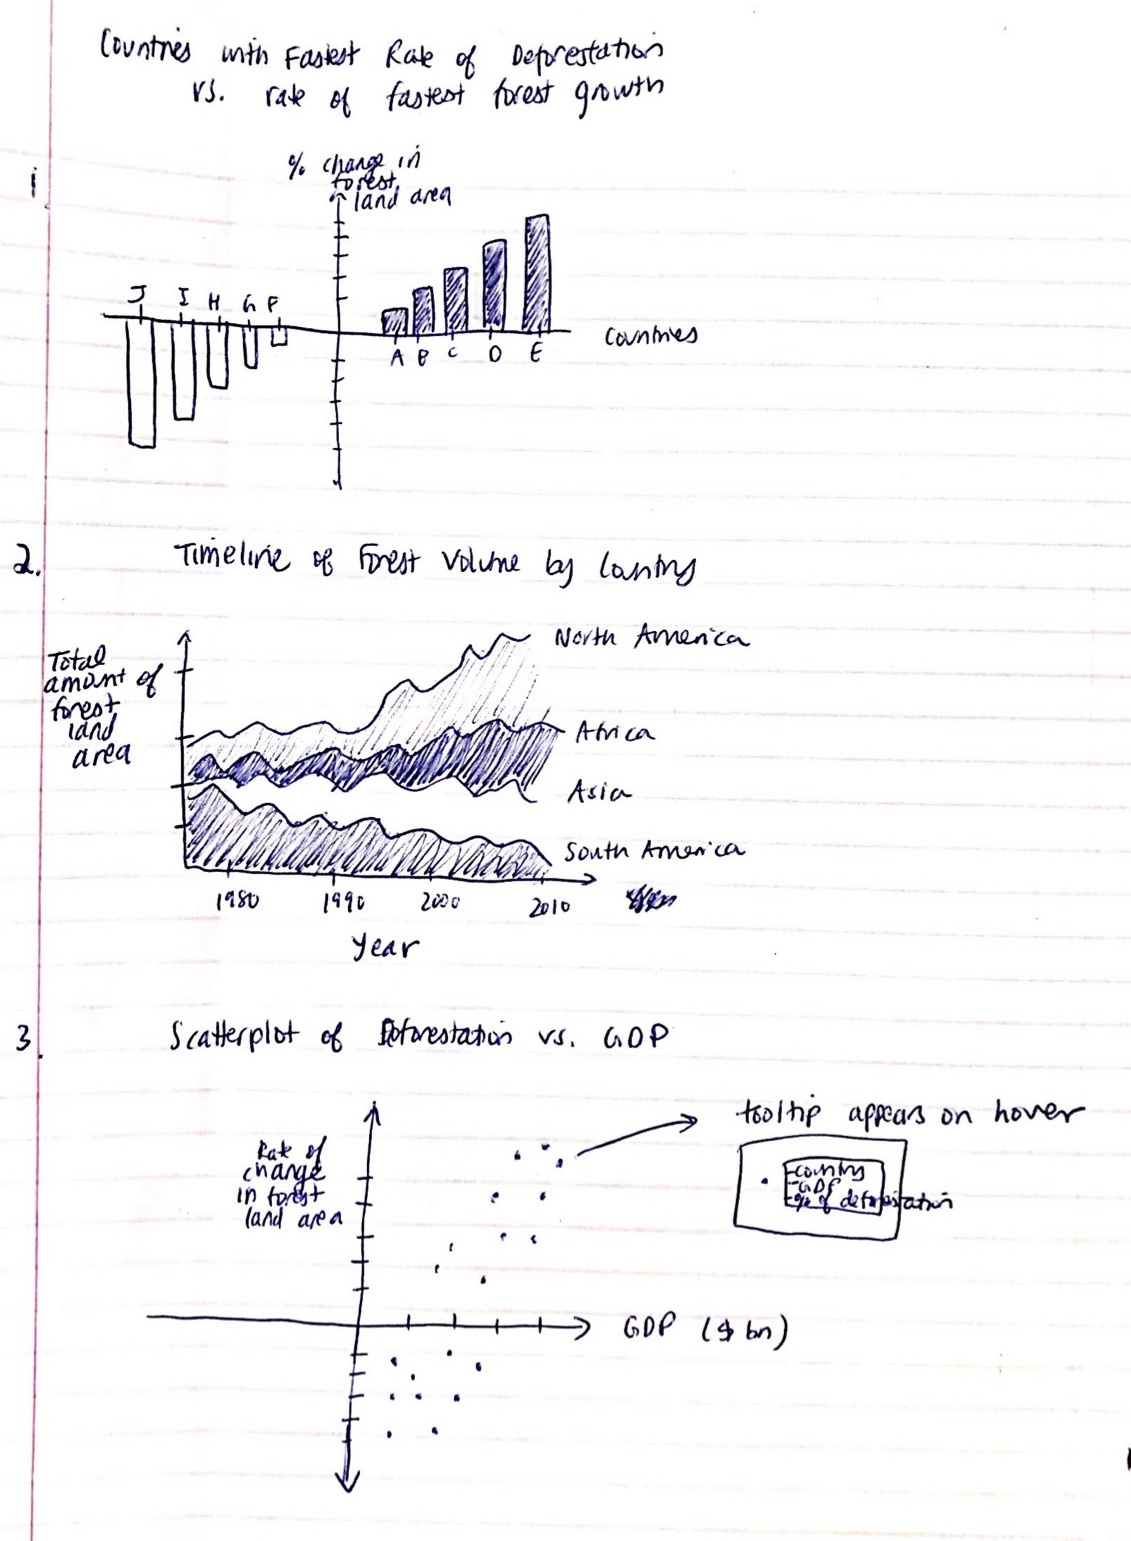 Countries with Fastest Rate of Deforestation
vs. rate of fastest forest growth
1.
% change in
forest
land area
J I H G F
A B C D E
Countries
2.
Timeline of Forest Volume by Country
Total
amount of
forest
land
area
North America
Africa
Asia
South America
1980 1990 2000 2010
Year
3.
Scatterplot of Deforestation vs. GDP
tooltip appears on hover
Rate of
change
in forest
land area
-country
-GDP
-% of deforestation
GDP ($ bn)